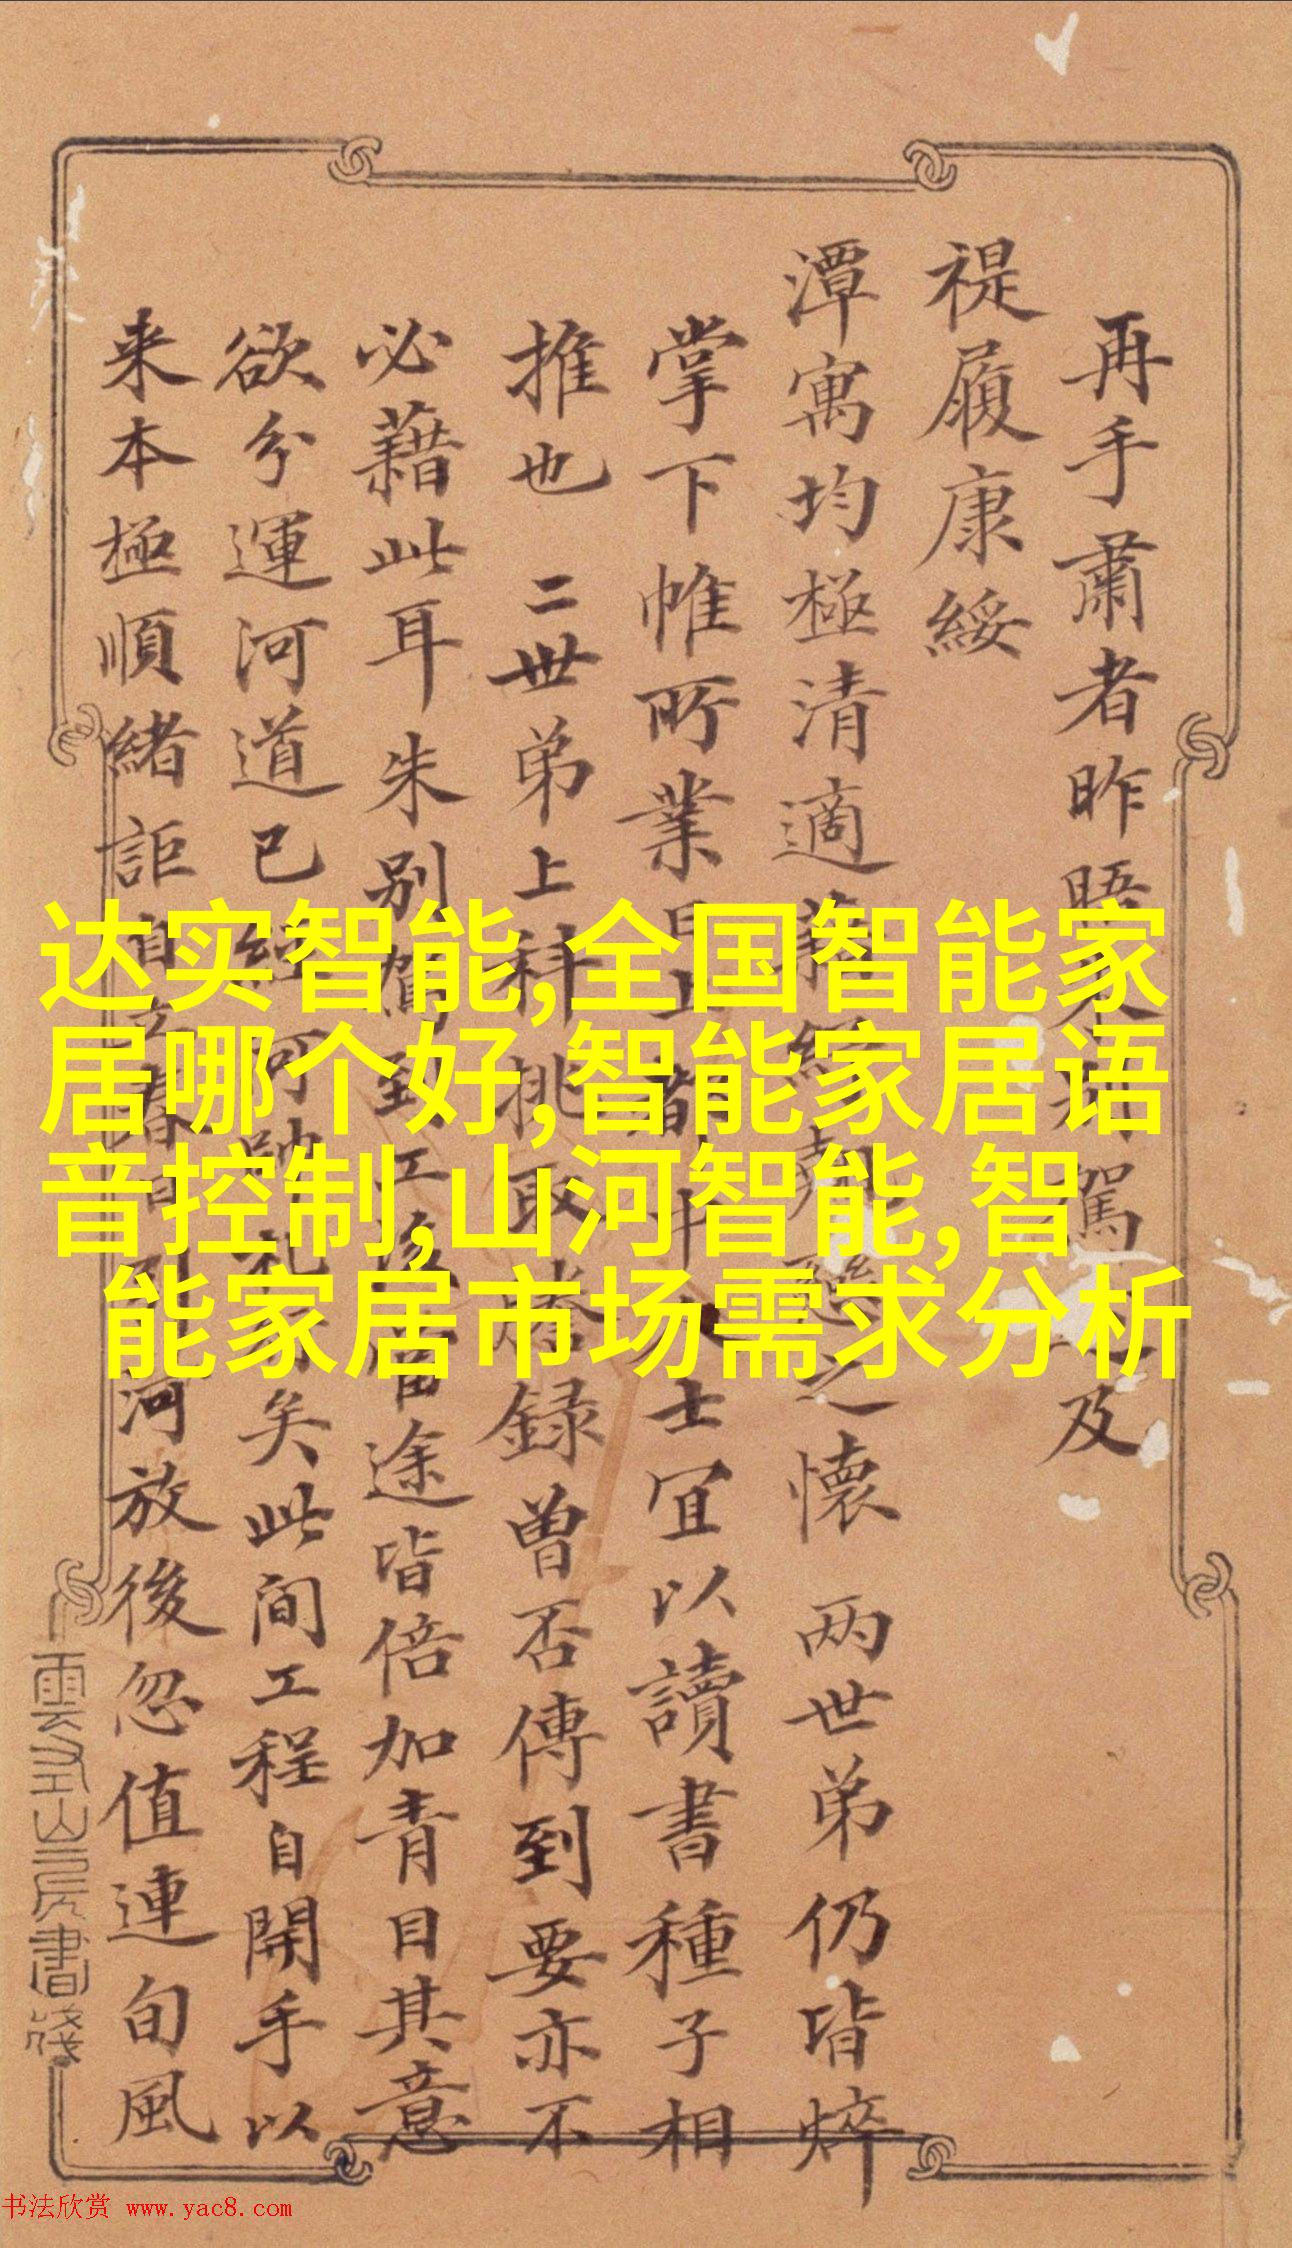 再手肅者昨晤
駕 及
禔履康綏
潭寓均極清適
之懷 两世弟仍皆焠
掌下帷所業日上
士宜以讀書種子相
推也 二世弟上科挑取謄錄曾否傳到要亦不
必藉此耳朱別駕到工後
當途皆倍加青目其意
欲分運河道已經
矣此间工程自開手以
来本極順緒詎自
河放後忽值連旬風
雲 山房書箋
达实智能,全国智能家
居哪个好,智能家居语
音控制,山河智能,智
能家居市场需求分析
书法欣赏 www.yac8.com